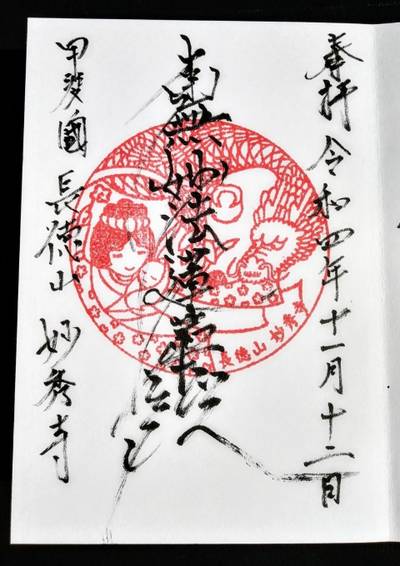 奉拝 令和四年十一月十二日
南無妙法蓮華経
甲斐國 長徳山 妙秀寺
長徳山 妙秀寺